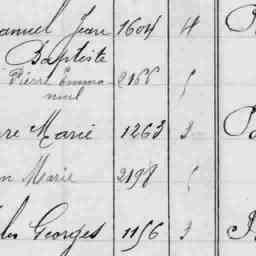 anuel Jean 1604 4
Baptiste
Pierre Emma- 2166
nuel
re Marie 1263
n Marie 2198
les Georges 1156 3